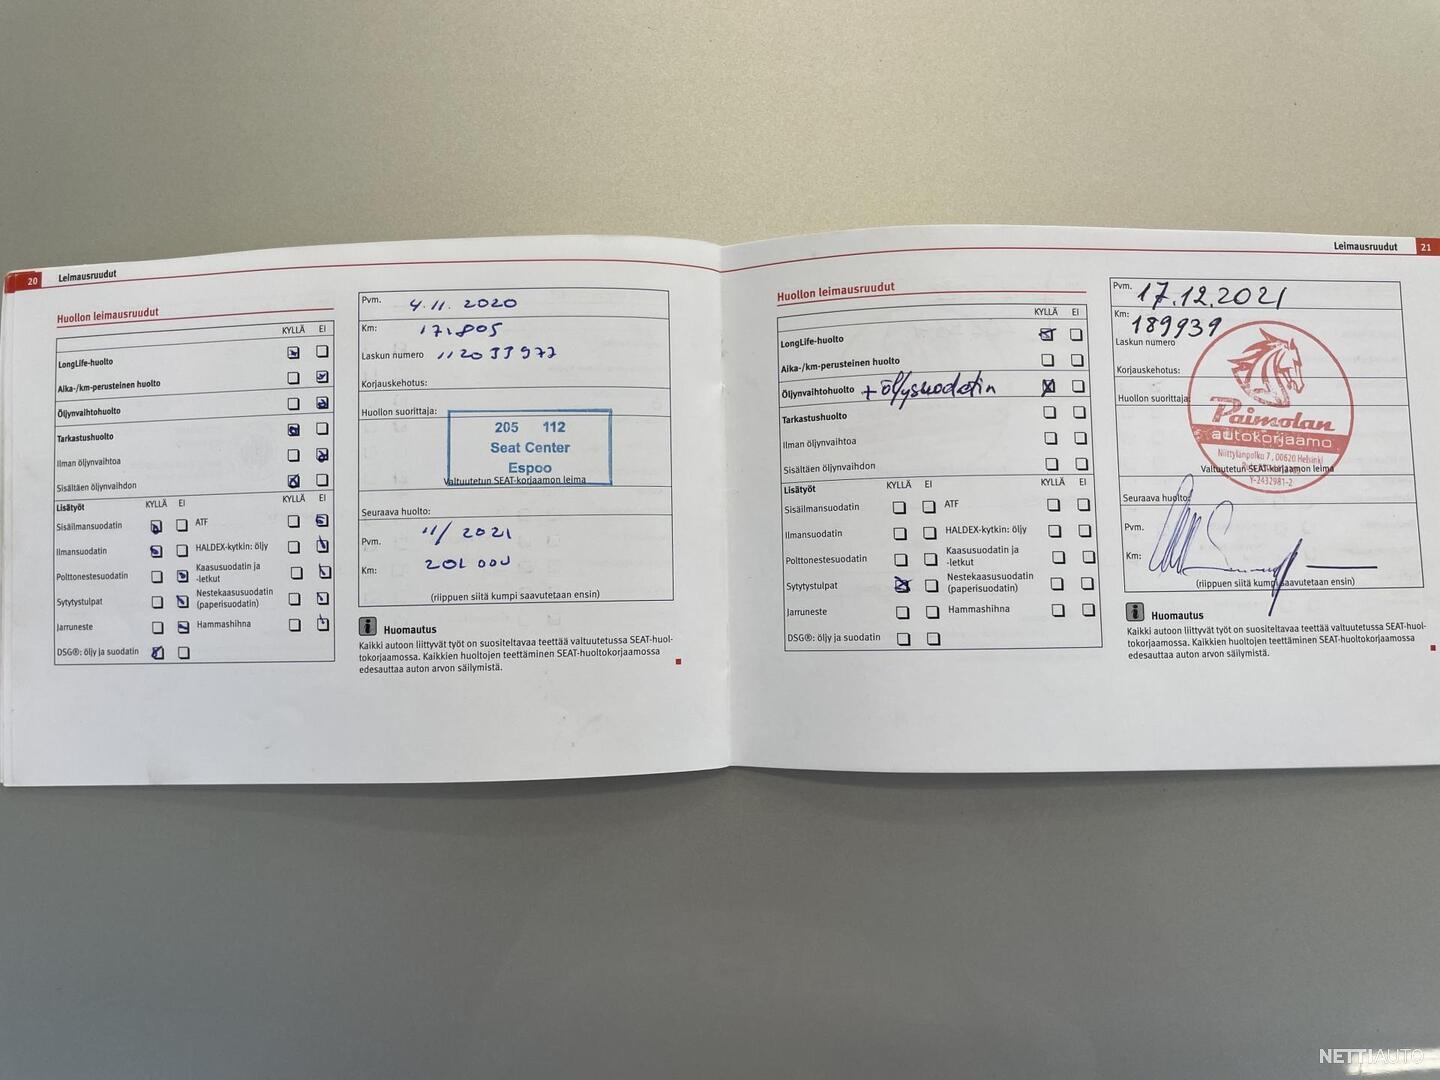 20 Leimausruudut
Huollon leimausruudut
KYLLÄ EI
LongLife-huolto
Aika-/km-perusteinen huolto
Öljynvaihtohuolto
Tarkastushuolto
Ilman öljynvaihtoa
Sisältäen öljynvaihdon
Lisätyöt KYLLÄ EI KYLLÄ EI
Sisäilmansuodatin ATF
Ilmansuodatin HALDEX-kytkin: öljy
Polttonestesuodatin Kaasusuodatin ja
-letkut
Sytytystulpat Nestekaasusuodatin
(paperisuodatin)
Jarruneste Hammashihna
DSG®: öljy ja suodatin
Pvm. 4.11.2020
Km: 171805
Laskun numero 112033977
Korjauskehotus:
Huollon suorittaja:
205 112
Seat Center
Espoo
Valtuutetun SEAT-korjaamon leima
Seuraava huolto:
Pvm. 11/2021
Km: 201 000
(riippuen siitä kumpi saavutetaan ensin)
i Huomautus
Kaikki autoon liittyvät työt on suositeltavaa teettää valtuutetussa SEAT-huol-
tokorjaamossa. Kaikkien huoltojen teettäminen SEAT-huoltokorjaamossa
edesauttaa auton arvon säilymistä.
Leimausruudut 21
Huollon leimausruudut
KYLLÄ EI
LongLife-huolto
Aika-/km-perusteinen huolto
Öljynvaihtohuolto + öljysuodatin
Tarkastushuolto
Ilman öljynvaihtoa
Sisältäen öljynvaihdon
Lisätyöt KYLLÄ EI KYLLÄ EI
Sisäilmansuodatin ATF
Ilmansuodatin HALDEX-kytkin: öljy
Polttonestesuodatin Kaasusuodatin ja
-letkut
Sytytystulpat Nestekaasusuodatin
(paperisuodatin)
Jarruneste Hammashihna
DSG®: öljy ja suodatin
Pvm. 17.12.2021
Km: 189939
Laskun numero
Korjauskehotus:
Huollon suorittaja:
Paimolan
autokorjaamo
Niittylänpolku 7, 00620 Helsinki
Y-2432981-2
Valtuutetun SEAT-korjaamon leima
Seuraava huolto:
Pvm.
Km:
(riippuen siitä kumpi saavutetaan ensin)
i Huomautus
Kaikki autoon liittyvät työt on suositeltavaa teettää valtuutetussa SEAT-huol-
tokorjaamossa. Kaikkien huoltojen teettäminen SEAT-huoltokorjaamossa
edesauttaa auton arvon säilymistä.
NETTIAUTO